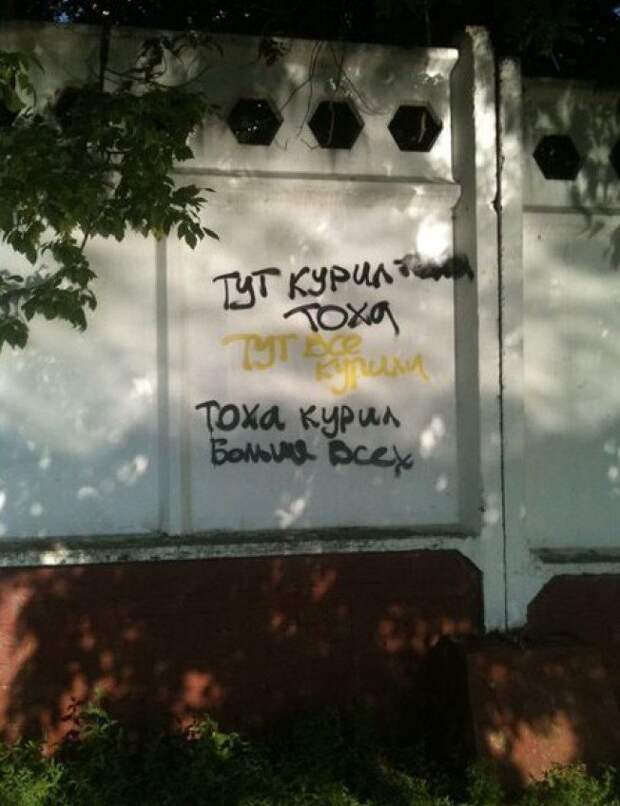 ТУТ КУРИЛ
ТОХА
ТУТ ВСЕ
КУРИЛИ
ТОХА КУРИЛ
БОЛЬШЕ ВСЕХ